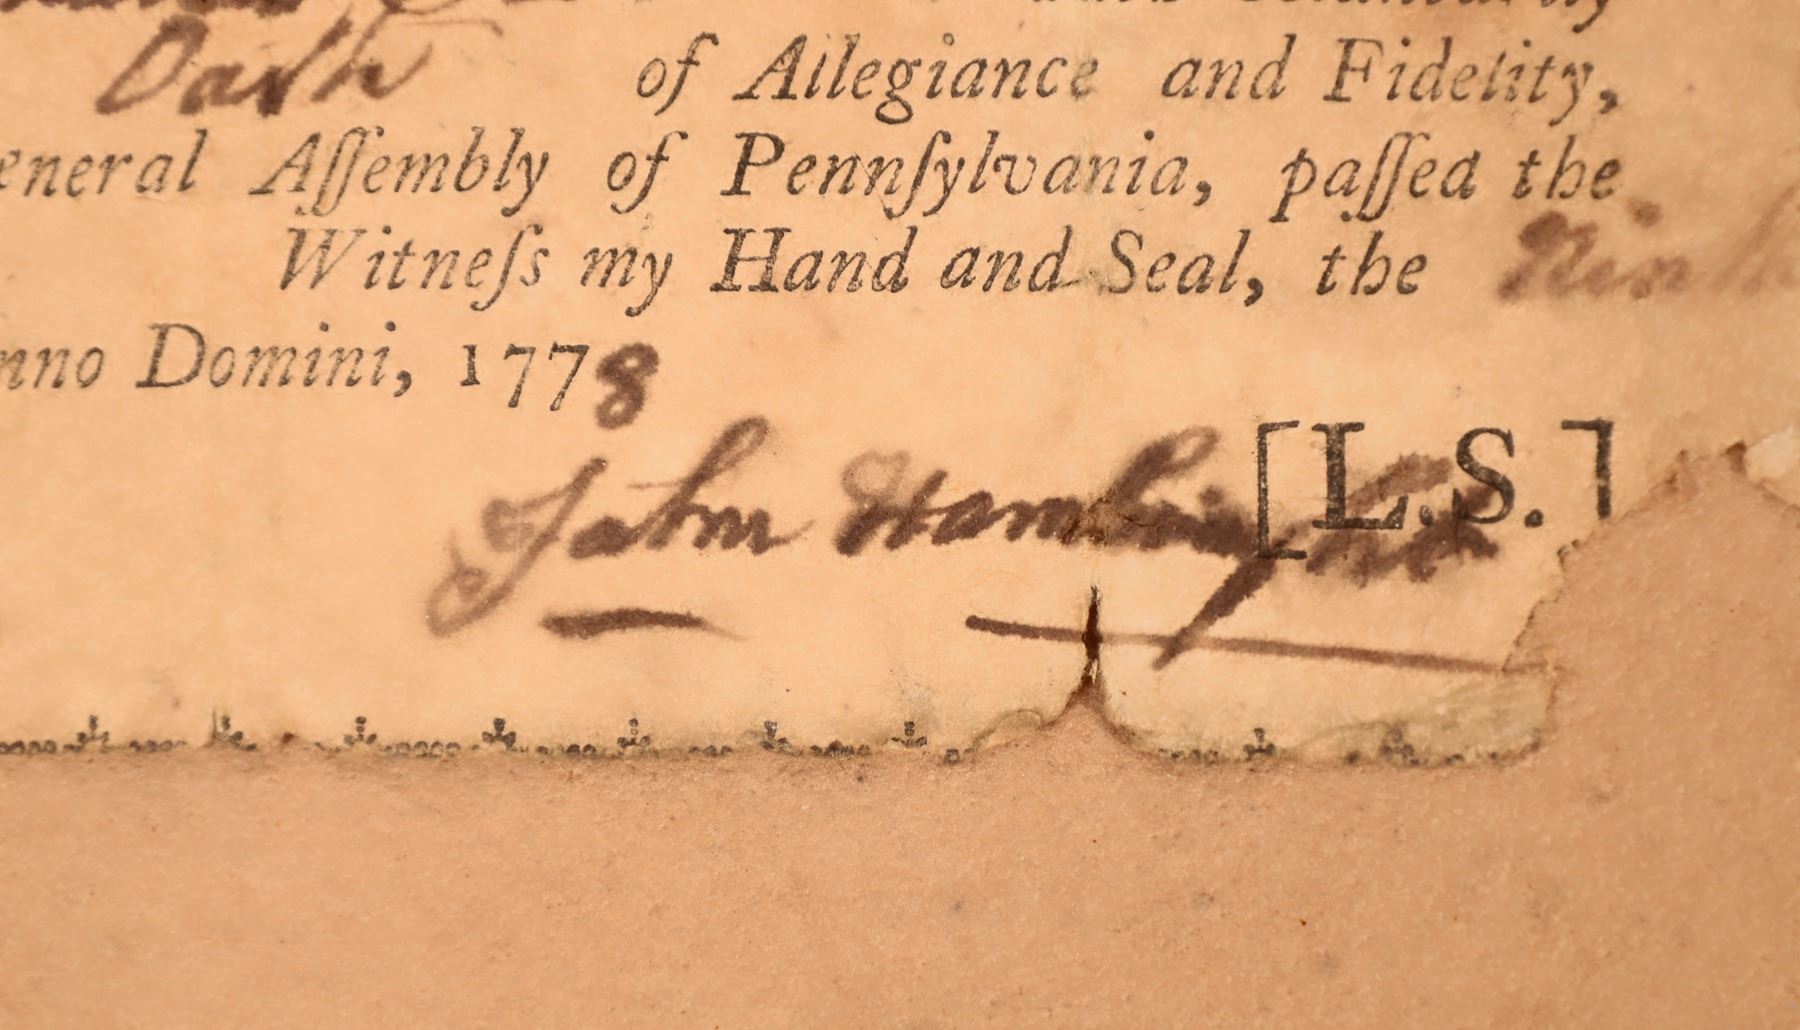 Oath of Allegiance and Fidelity,
eneral Aſſembly of Pennſylvania, paſſed the
Witneſs my Hand and Seal, the
nno Domini, 1778
John [L.S.]